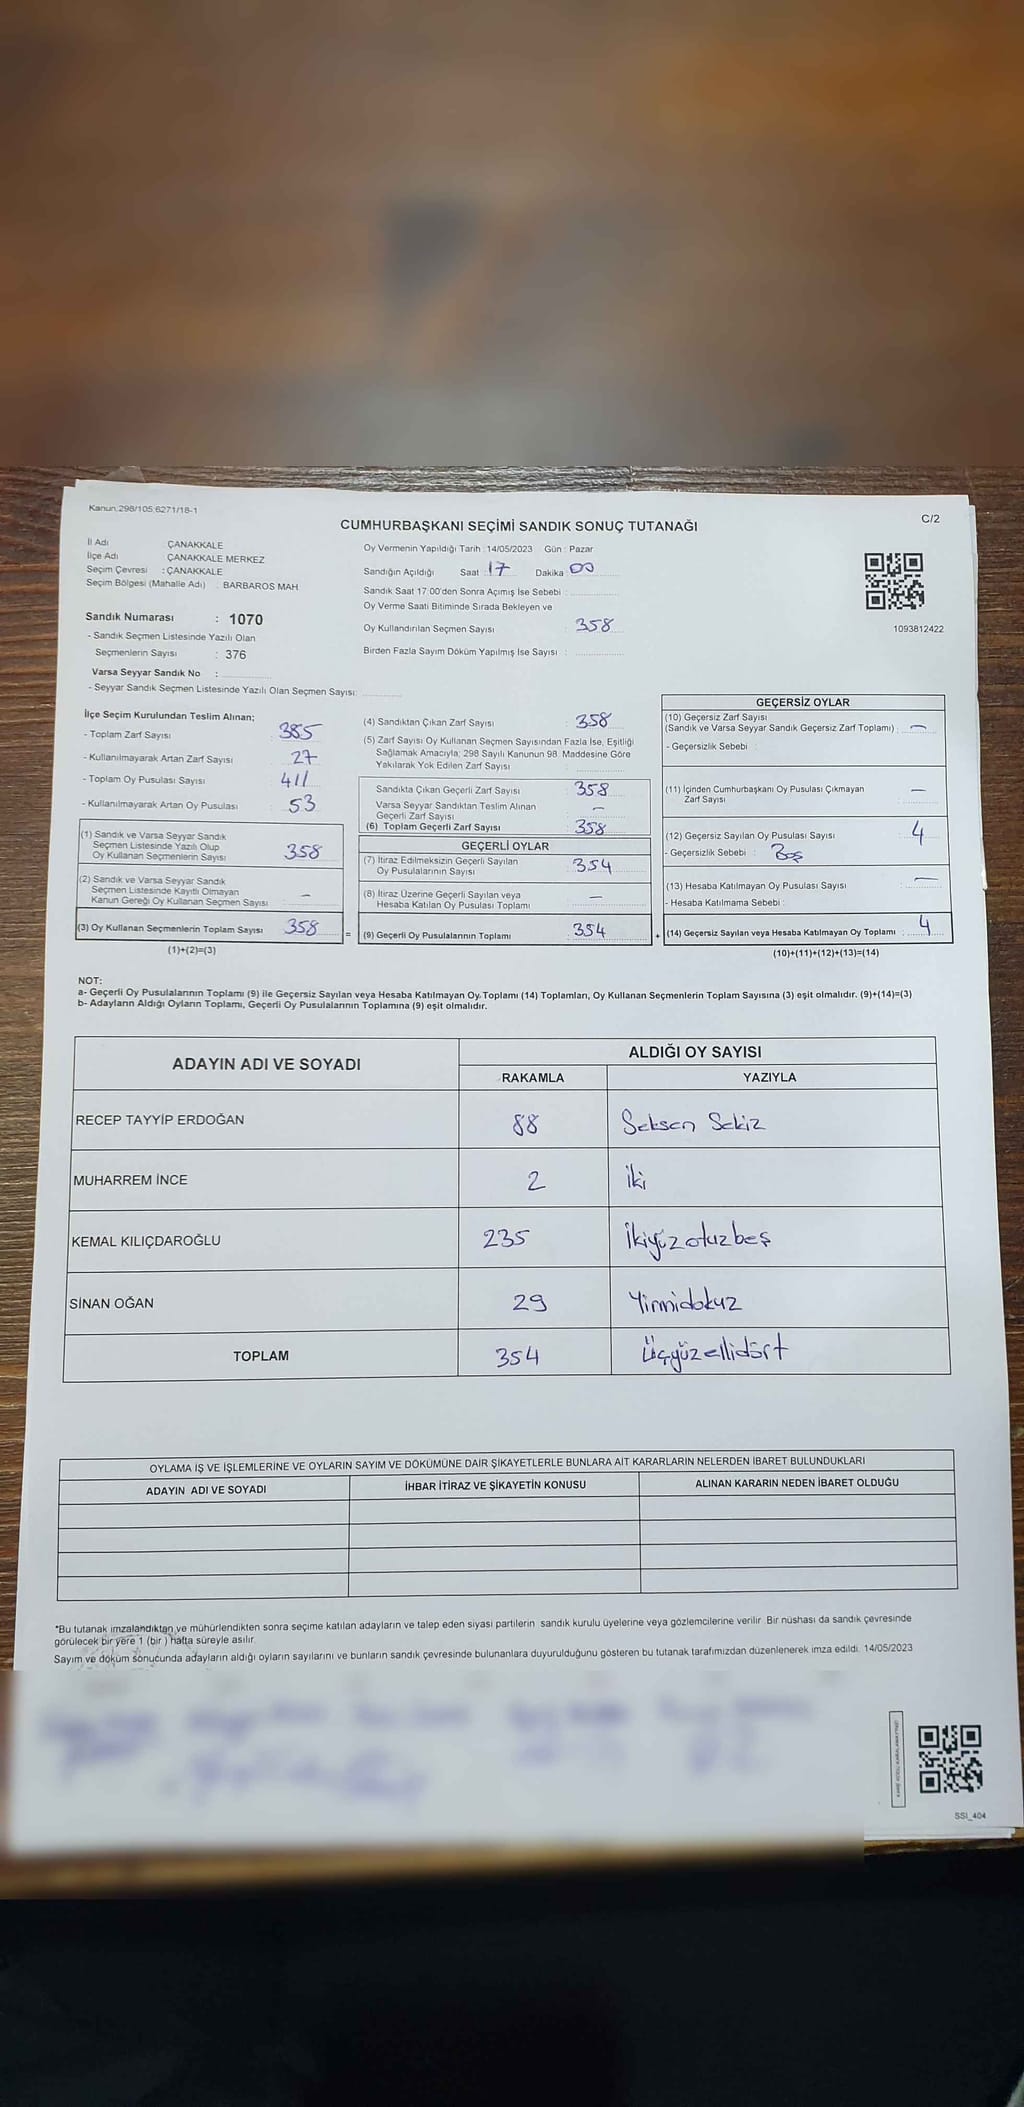 Kanun:298/105,6271/18-1
C/2
CUMHURBAŞKANI SEÇİMİ SANDIK SONUÇ TUTANAĞI
İl Adı : ÇANAKKALE
İlçe Adı : ÇANAKKALE MERKEZ
Seçim Çevresi : ÇANAKKALE
Seçim Bölgesi (Mahalle Adı) : BARBAROS MAH
Sandık Numarası : 1070
- Sandık Seçmen Listesinde Yazılı Olan
Seçmenlerin Sayısı : 376
Varsa Seyyar Sandık No :
- Seyyar Sandık Seçmen Listesinde Yazılı Olan Seçmen Sayısı:
Oy Vermenin Yapıldığı Tarih : 14/05/2023 Gün : Pazar
Sandığın Açıldığı Saat 17 Dakika 00
Sandık Saat 17:00'den Sonra Açımış İse Sebebi :
Oy Verme Saati Bitiminde Sırada Bekleyen ve
Oy Kullandırılan Seçmen Sayısı : 358
Birden Fazla Sayım Döküm Yapılmış İse Sayısı :
1093812422
İlçe Seçim Kurulundan Teslim Alınan;
- Toplam Zarf Sayısı 385
- Kullanılmayarak Artan Zarf Sayısı 27
- Toplam Oy Pusulası Sayısı 411
- Kullanılmayarak Artan Oy Pusulası 53
(1) Sandık ve Varsa Seyyar Sandık
Seçmen Listesinde Yazılı Olup
Oy Kullanan Seçmenlerin Sayısı 358
(2) Sandık ve Varsa Seyyar Sandık
Seçmen Listesinde Kayıtlı Olmayan
Kanun Gereği Oy Kullanan Seçmen Sayısı : –
(3) Oy Kullanan Seçmenlerin Toplam Sayısı 358
(1)+(2)=(3)
=
(4) Sandıktan Çıkan Zarf Sayısı : 358
(5) Zarf Sayısı Oy Kullanan Seçmen Sayısından Fazla İse, Eşitliği
Sağlamak Amacıyla; 298 Sayılı Kanunun 98. Maddesine Göre
Yakılarak Yok Edilen Zarf Sayısı :
Sandıkta Çıkan Geçerli Zarf Sayısı 358
Varsa Seyyar Sandıktan Teslim Alınan
Geçerli Zarf Sayısı –
(6) Toplam Geçerli Zarf Sayısı 358
GEÇERLİ OYLAR
(7) İtiraz Edilmeksizin Geçerli Sayılan
Oy Pusulalarının Sayısı : 354
(8) İtiraz Üzerine Geçerli Sayılan veya
Hesaba Katılan Oy Pusulası Toplamı –
(9) Geçerli Oy Pusulalarının Toplamı 354
+
GEÇERSİZ OYLAR
(10) Geçersiz Zarf Sayısı
(Sandık ve Varsa Seyyar Sandık Geçersiz Zarf Toplamı) : –
- Geçersizlik Sebebi :
(11) İçinden Cumhurbaşkanı Oy Pusulası Çıkmayan
Zarf Sayısı : –
(12) Geçersiz Sayılan Oy Pusulası Sayısı : 4
- Geçersizlik Sebebi : Boş
(13) Hesaba Katılmayan Oy Pusulası Sayısı : –
- Hesaba Katılmama Sebebi :
(14) Geçersiz Sayılan veya Hesaba Katılmayan Oy Toplamı : 4
(10)+(11)+(12)+(13)=(14)
NOT:
a- Geçerli Oy Pusulalarının Toplamı (9) ile Geçersiz Sayılan veya Hesaba Katılmayan Oy Toplamı (14) Toplamları, Oy Kullanan Seçmenlerin Toplam Sayısına (3) eşit olmalıdır. (9)+(14)=(3)
b- Adayların Aldığı Oyların Toplamı, Geçerli Oy Pusulalarının Toplamına (9) eşit olmalıdır.
ADAYIN ADI VE SOYADI ALDIĞI OY SAYISI
RAKAMLA YAZIYLA
RECEP TAYYİP ERDOĞAN 88 Seksen Sekiz
MUHARREM İNCE 2 iki
KEMAL KILIÇDAROĞLU 235 İkiyüzotuzbeş
SİNAN OĞAN 29 Yirmidokuz
TOPLAM 354 Üçyüzellidört
OYLAMA İŞ VE İŞLEMLERİNE VE OYLARIN SAYIM VE DÖKÜMÜNE DAİR ŞİKAYETLERLE BUNLARA AİT KARARLARIN NELERDEN İBARET BULUNDUKLARI
ADAYIN ADI VE SOYADI İHBAR İTİRAZ VE ŞİKAYETİN KONUSU ALINAN KARARIN NEDEN İBARET OLDUĞU
*Bu tutanak imzalandıktan ve mühürlendikten sonra seçime katılan adayların ve talep eden siyasi partilerin sandık kurulu üyelerine veya gözlemcilerine verilir. Bir nüshası da sandık çevresinde
görülecek bir yere 1 (bir ) hafta süreyle asılır.
Sayım ve döküm sonucunda adayların aldığı oyların sayılarını ve bunların sandık çevresinde bulunanlara duyurulduğunu gösteren bu tutanak tarafımızdan düzenlenerek imza edildi. 14/05/2023
SSI_404